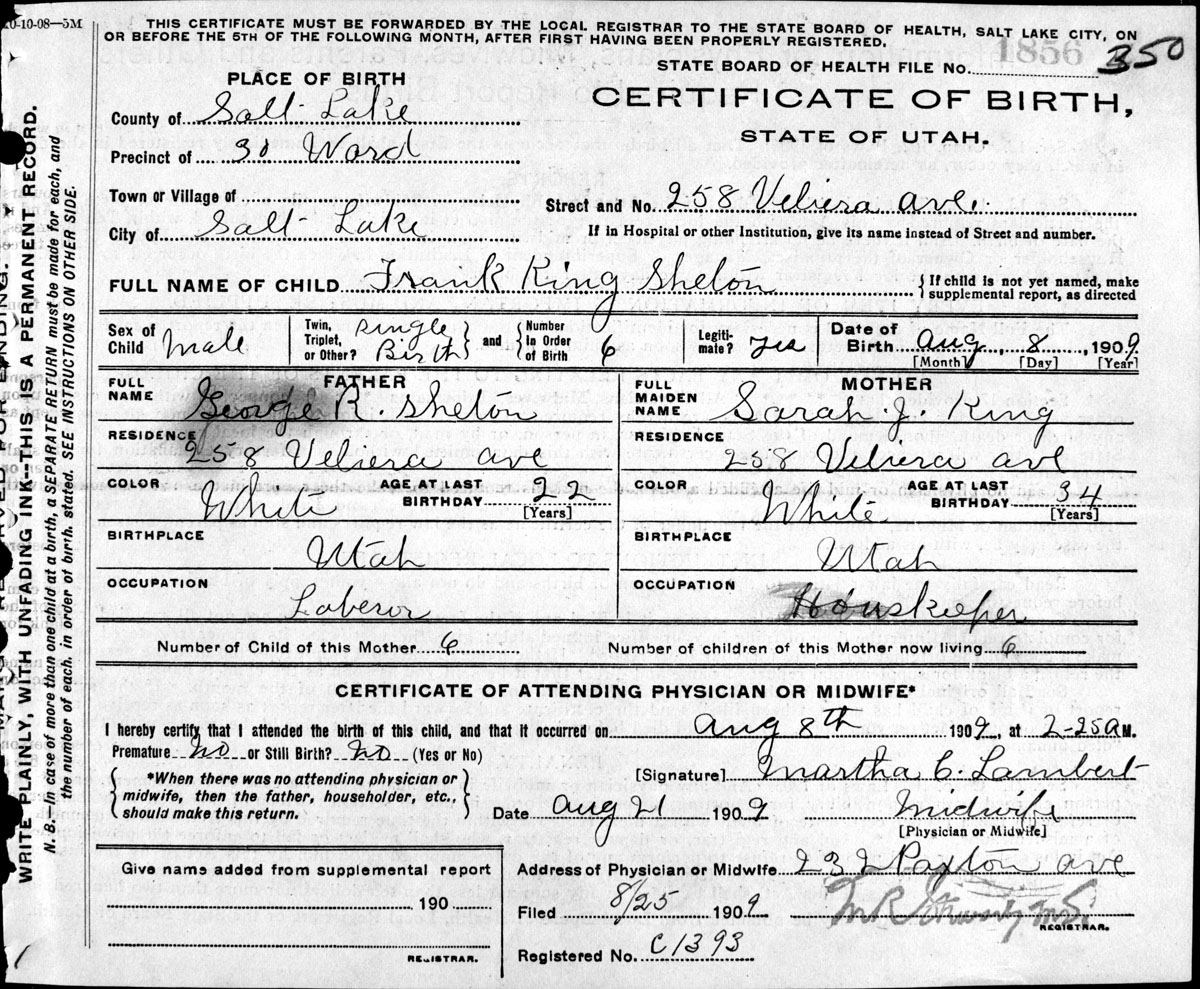 10-10-08—5M
THIS CERTIFICATE MUST BE FORWARDED BY THE LOCAL REGISTRAR TO THE STATE BOARD OF HEALTH, SALT LAKE CITY, ON
OR BEFORE THE 5TH OF THE FOLLOWING MONTH, AFTER FIRST HAVING BEEN PROPERLY REGISTERED.
STATE BOARD OF HEALTH FILE No. 1856 350
PLACE OF BIRTH
CERTIFICATE OF BIRTH,
STATE OF UTAH.
County of Salt Lake
Precinct of 30 Ward
Town or Village of
Street and No. 258 Ave.
City of Salt Lake
If in Hospital or other Institution, give its name instead of Street and number.
FULL NAME OF CHILD Frank King Shelton
{If child is not yet named, make
supplemental report, as directed
Sex of Child Male
Twin, Triplet, or Other? Single Birth} and {Number In Order of Birth 6
Legiti-mate? Yes
Date of Birth Aug, 8, 1909
[Month] [Day] [Year]
FATHER
FULL NAME George R. Shelton
RESIDENCE 258 Ave
COLOR White AGE AT LAST BIRTHDAY 22
[Years]
BIRTHPLACE
Utah
OCCUPATION
Laberor
MOTHER
FULL MAIDEN NAME Sarah J. King
RESIDENCE
258 Ave
COLOR White AGE AT LAST BIRTHDAY 34
[Years]
BIRTHPLACE
Utah
OCCUPATION
Houskeeper
Number of Child of this Mother 6
Number of children of this Mother now living 6
CERTIFICATE OF ATTENDING PHYSICIAN OR MIDWIFE*
I hereby certify that I attended the birth of this child, and that it occurred on Aug 8th 1909, at 2-25 A M.
Premature? No or Still Birth? No (Yes or No)
{*When there was no attending physician or
midwife, then the father, householder, etc.,
should make this return.}
[Signature] Martha C. Lambert
Date Aug 21 1909 Midwife
[Physician or Midwife]
Address of Physician or Midwife 232 Paxton Ave
Filed 8/25 1909
REGISTRAR.
Registered No. C1393
Give name added from supplemental report
190
REGISTRAR.
WRITE PLAINLY, WITH UNFADING INK—THIS IS A PERMANENT RECORD.
N. B.—In case of more than one child at a birth, a SEPARATE RETURN must be made for each, and
the number of each, in order of birth, stated. SEE INSTRUCTIONS ON OTHER SIDE.